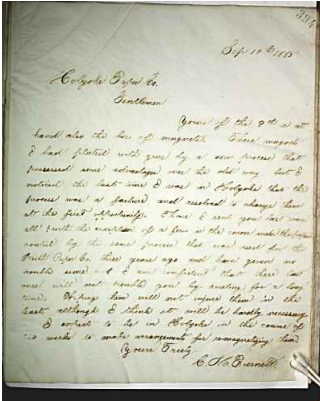 394
Sep. 10th 1885
Holyoke Paper Co.
Gentlemen
Yours of the 9th is at
hand also the box of magnets. These magnets
I had plated with zinc by a new process that
possessed some advantages over the old way but I
noticed the last time I was in Holyoke that the
process was a failure and resolved to change them
at the first opportunity. Those I sent you last were
all with the exception of a few in the
coated by the same process that was used for the
Paper Co. three years ago and have given no
trouble since and I am confident that these last
ones will not trouble you by rusting for a long
time. will not injure them in the
least although I think it will be hardly necessary
I expect to be in Holyoke in the course of
two weeks to make arrangements for remagnetizing them
Yours Truly
C. N.